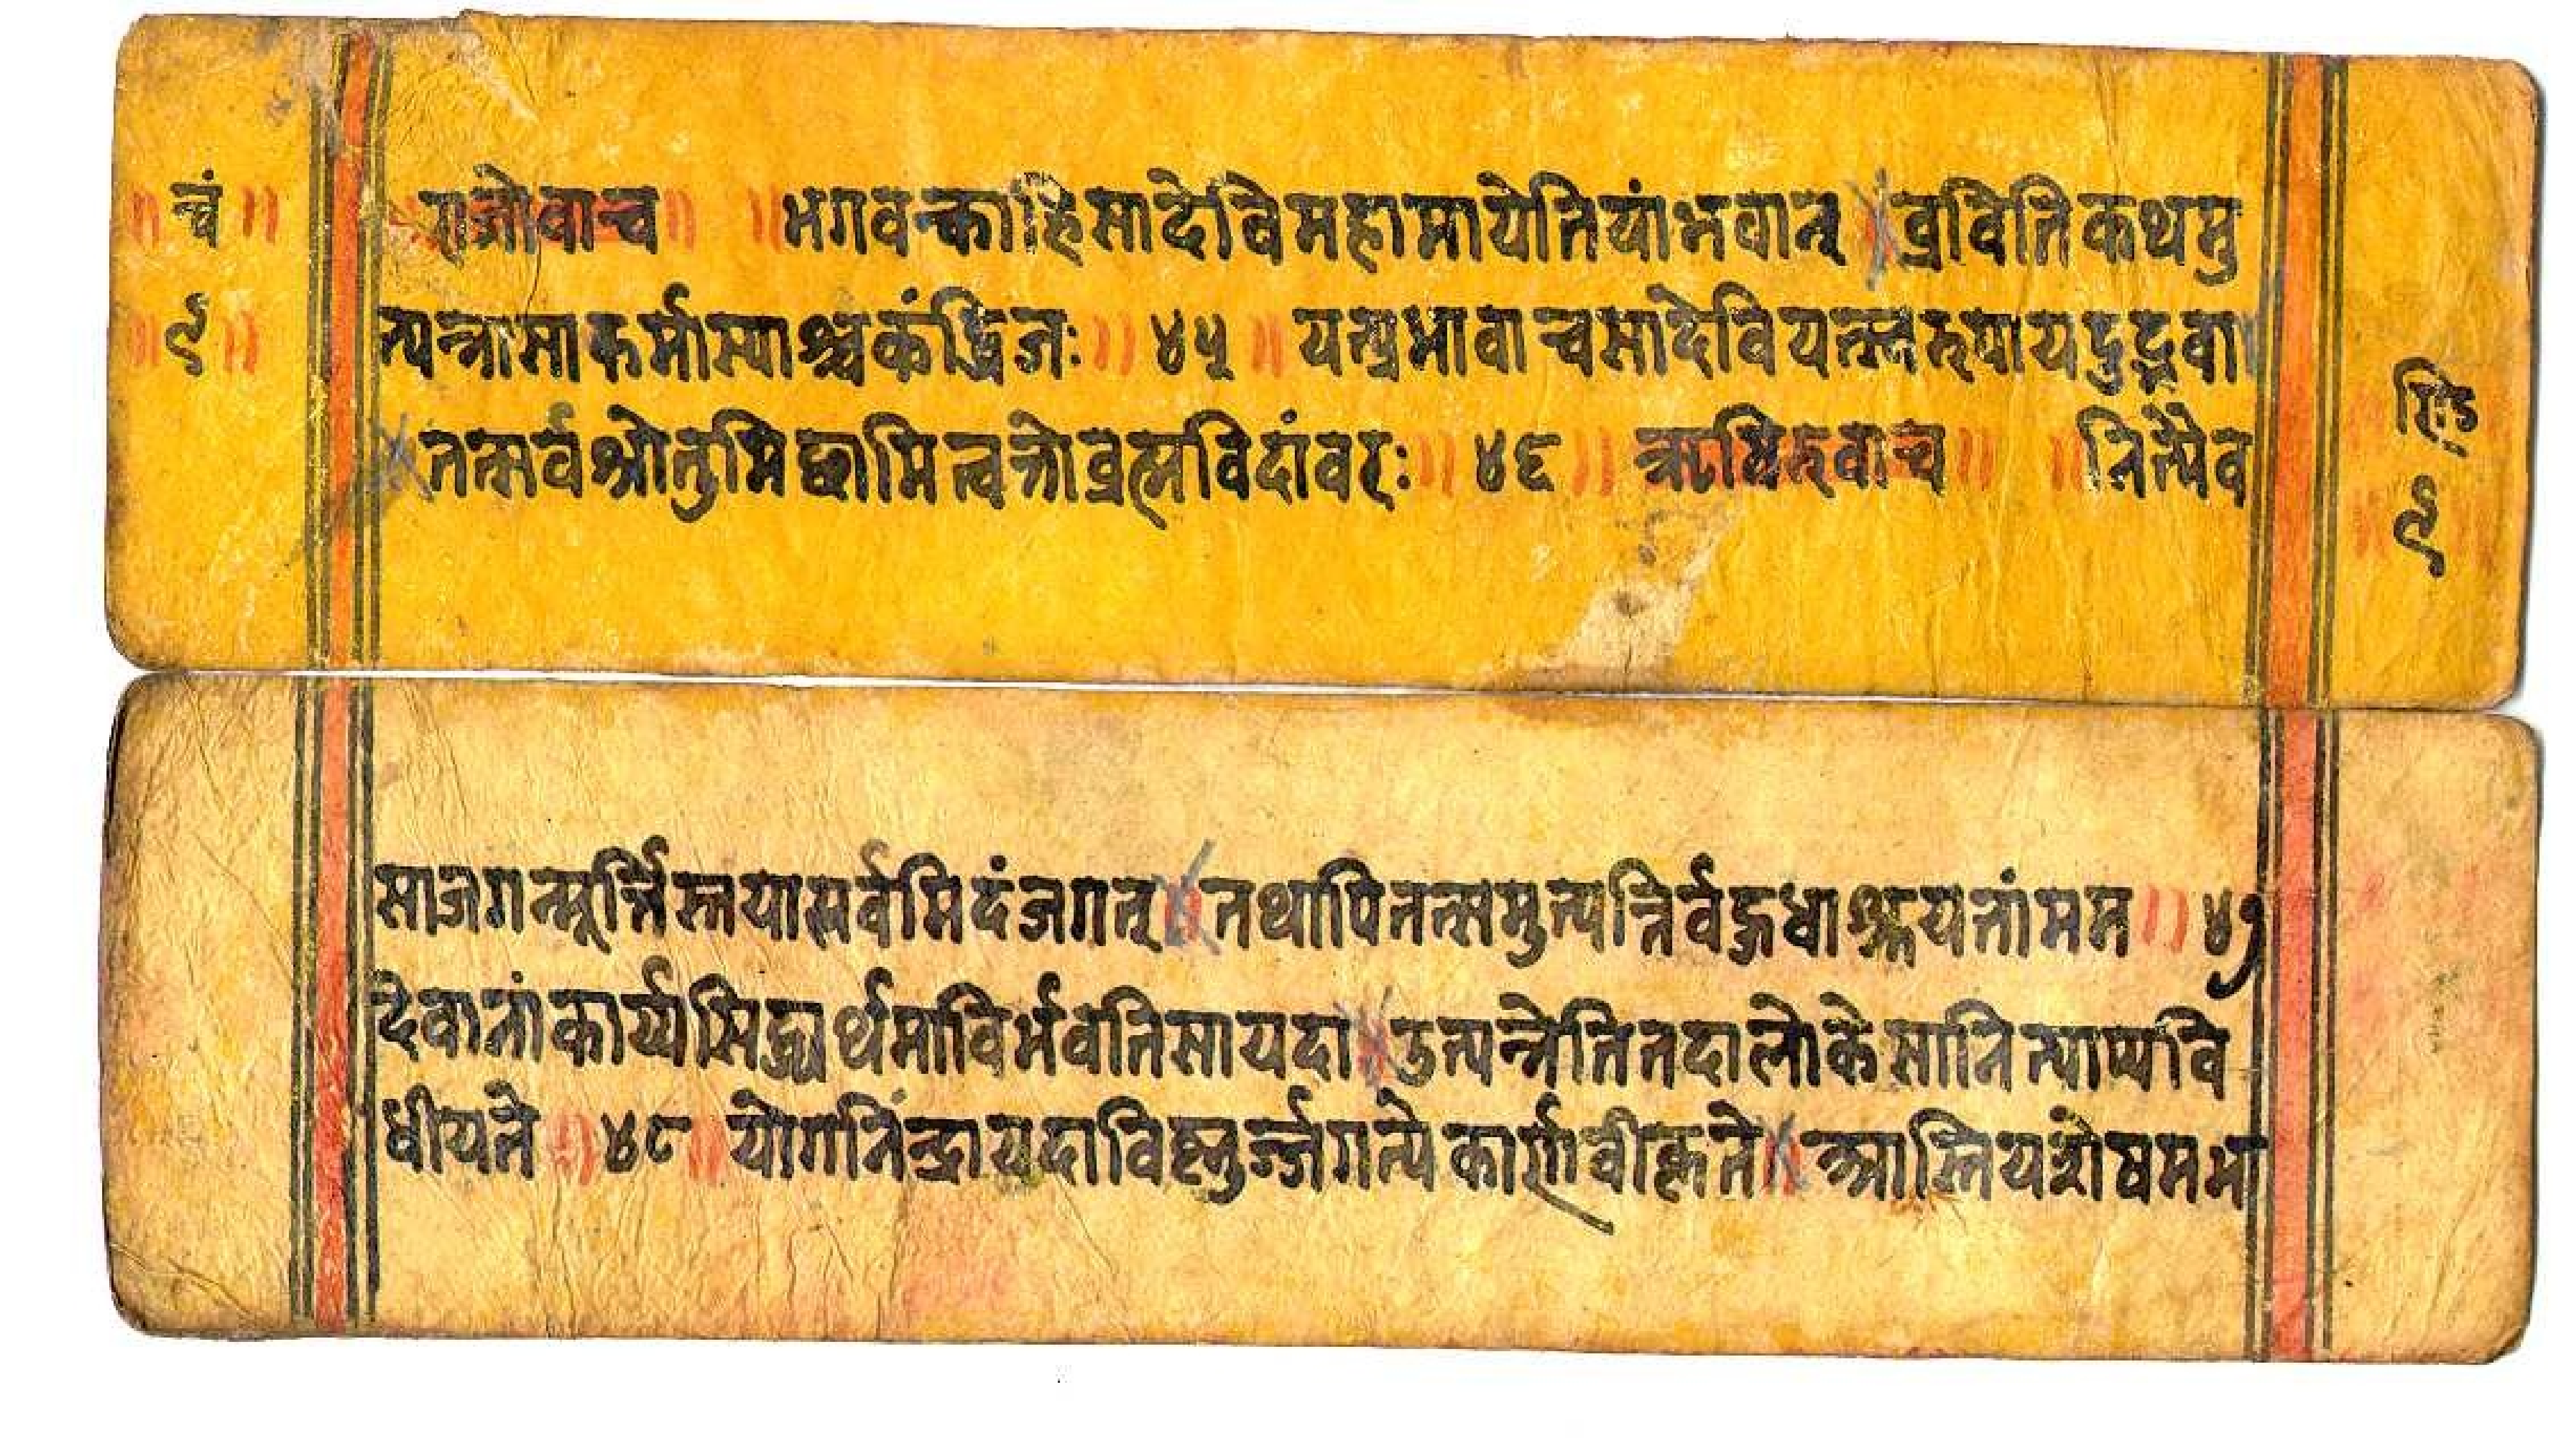 ॥ चं ॥
॥ ९ ॥
राजोवाच ॥ ॥ भगवन्काहिसादेविमहामायेतियांभवान् । व्रवितिकथमु
त्पन्नासाकर्मास्याश्चकंद्विजः ॥ ४५ ॥ यत्प्रभावाचसादेवियत्स्वरूपायदुद्भवा
तत्सर्वश्रोतुमिछामित्वत्तोव्रह्मविदांवरः ॥ ४६ ॥ ऋषिरुवाच ॥ ॥ नित्यैव
९
साजगन्मूर्त्तिस्तयासर्वमिदंजगत् । तथापितत्समुत्पत्तिर्वहुधाश्रूयतांमम ॥ ४७
देवानांकार्य्यसिद्ध्यर्थमाविर्भवतिसायदा । उत्पन्नेतितदालोकेसानित्याप्यवि
धीयते ॥ ४८ ॥ योगनिंन्द्रायदाविष्णुर्ज्जगत्येकार्णवीकृते । आस्तियशेषमभ